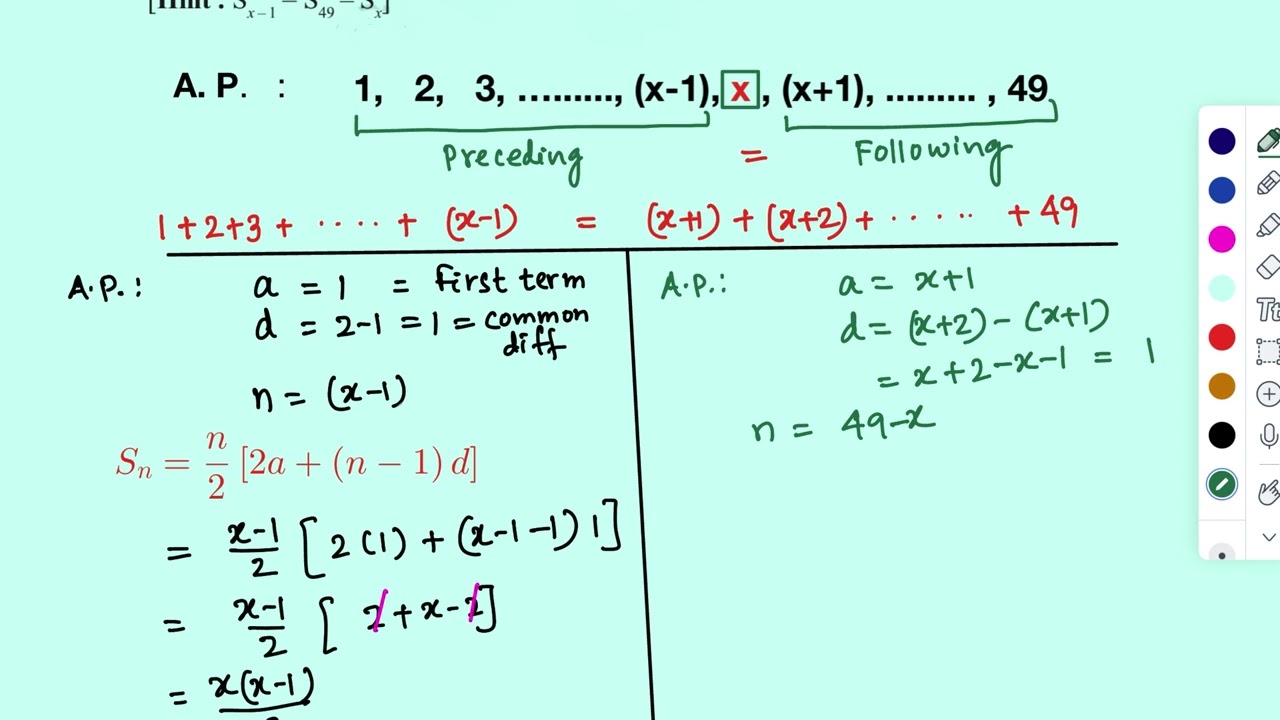 [Hint : Sx−1 = S49 − Sx]
A. P. : 1, 2, 3, ........., (x-1), x, (x+1), ......... , 49
Preceding = Following
1+2+3+ ····+ (x-1) = (x+1) + (x+2)+ ····· +49
A.P.: a = 1 = first term
d = 2-1 = 1 = common diff
n = (x-1)
Sn = n/2 [2a + (n − 1) d]
= x-1/2 [2(1) + (x-1-1)1]
= x-1/2 [2+x-2]
= x(x-1)
A.P.: a = x+1
d = (x+2) - (x+1)
= x+2-x-1 = 1
n = 49-x
Tt